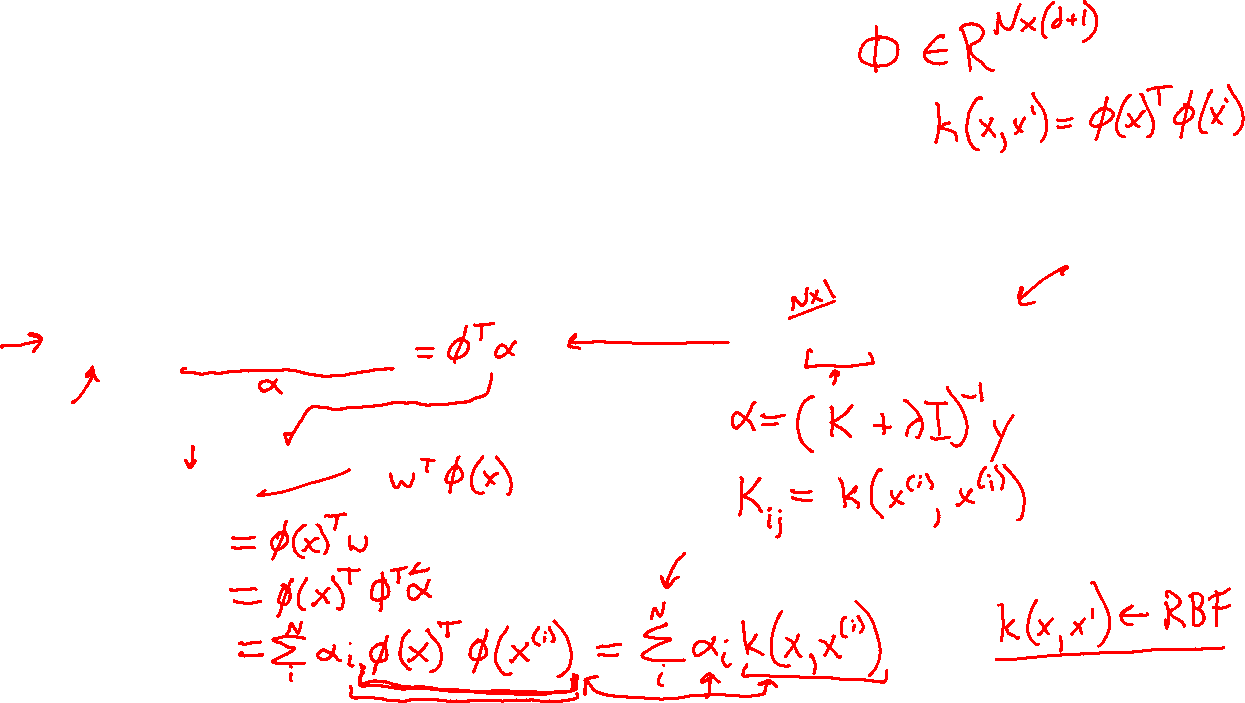 Φ ∈ R^{N×(d+1)}
k(x, x') = φ(x)^T φ(x')
N×1
= Φ^T α
α
α = (K + λI)^{-1} y
w^T φ(x)
K_{ij} = k(x^{(i)}, x^{(i)})
= φ(x)^T w
= φ(x)^T Φ^T α
= Σ_i^N α_i φ(x)^T φ(x^{(i)}) = Σ_i^N α_i k(x, x^{(i)})
k(x, x') ← RBF